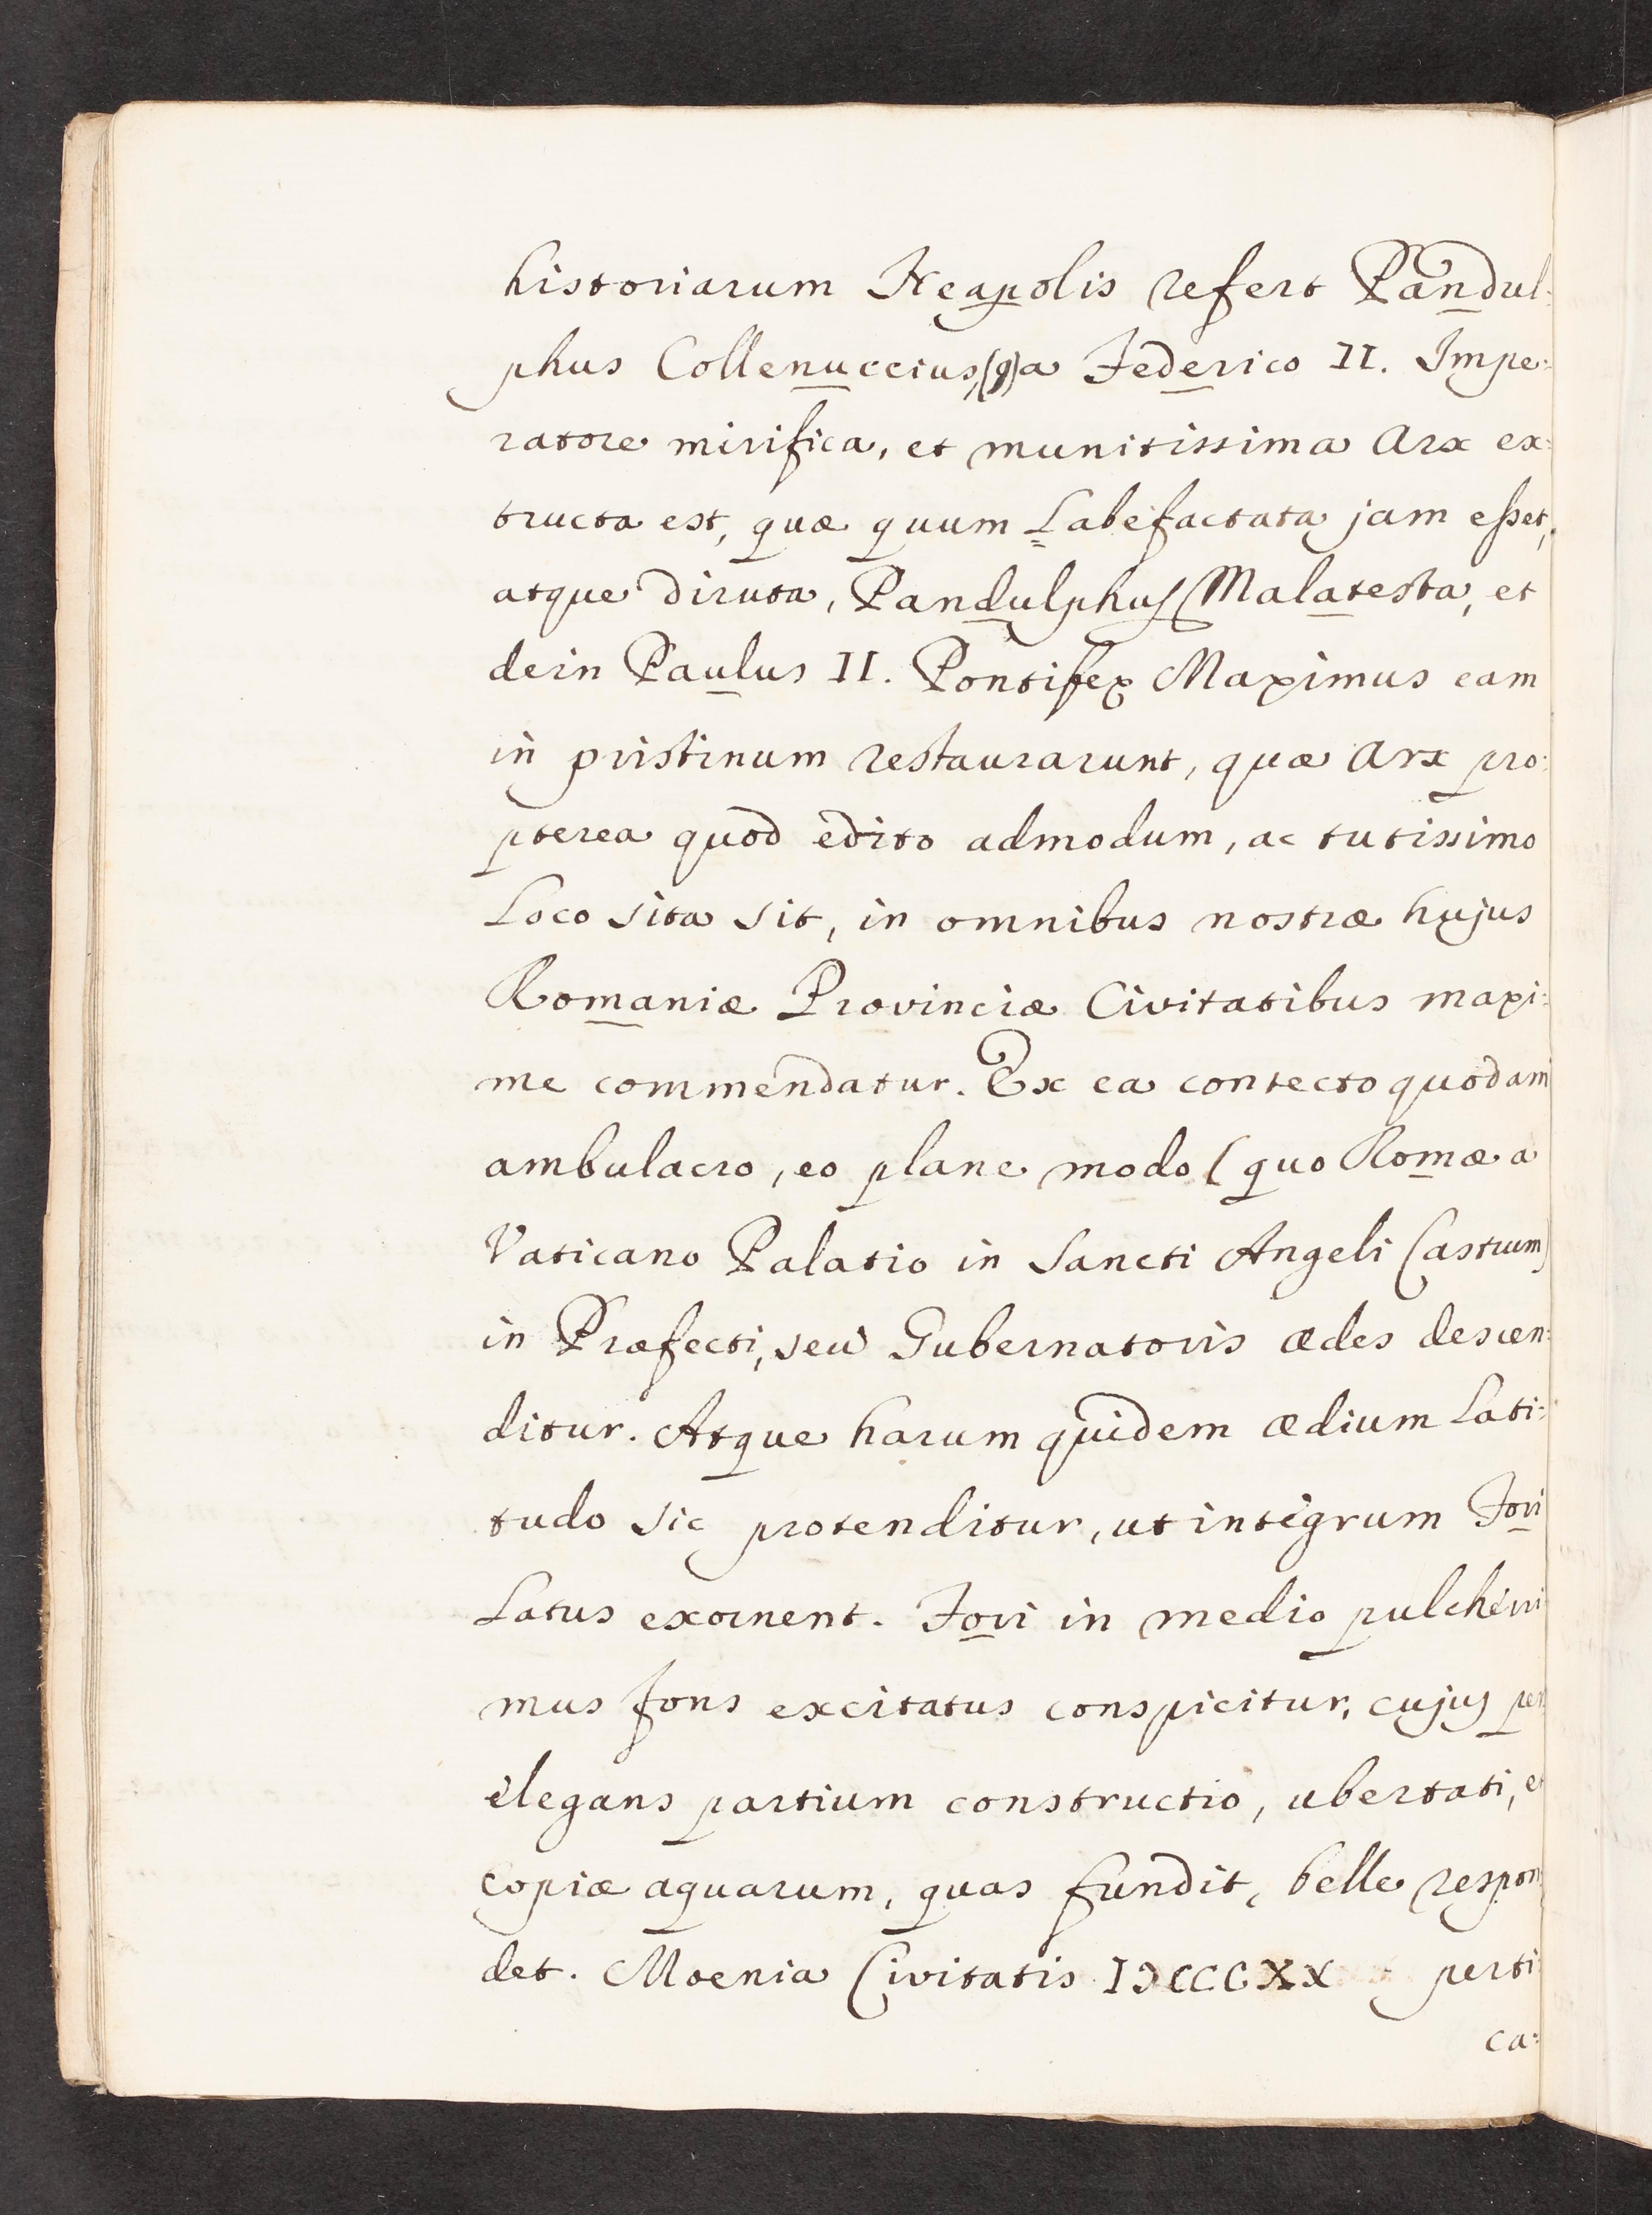 historiarum Neapolis refert Pandul:
phus Collenuccius,(g) a Federico II. Impe:
ratore mirifica, et munitissima Arx ex:
tructa est, quæ quum Labefactata jam esset,
atque diruta, Pandulphus Malatesta, et
dein Paulus II. Pontifex Maximus eam
in pristinum restaurarunt, quæ Arx pro:
pterea quod edito admodum, ac tutissimo
Loco sita sit, in omnibus nostræ hujus
Romaniæ Provinciæ Civitatibus maxi:
me commendatur. Ex ea contecto quodam
ambulacro, eo plane modo (quo Romæ a
Vaticano Palatio in Sancti Angeli Castrum)
in Præfecti, seu Gubernatoris ædes descen:
ditur. Atque harum quidem ædium Lati:
tudo sic protenditur, ut integrum Fori
Latus exornent. Fori in medio pulcherri
mus fons excitatus conspicitur, cujus per
elegans partium constructio, ubertati, et
copiæ aquarum, quas fundit, belle respon
det. Moenia Civitatis IƆCCCXX perti
ca: